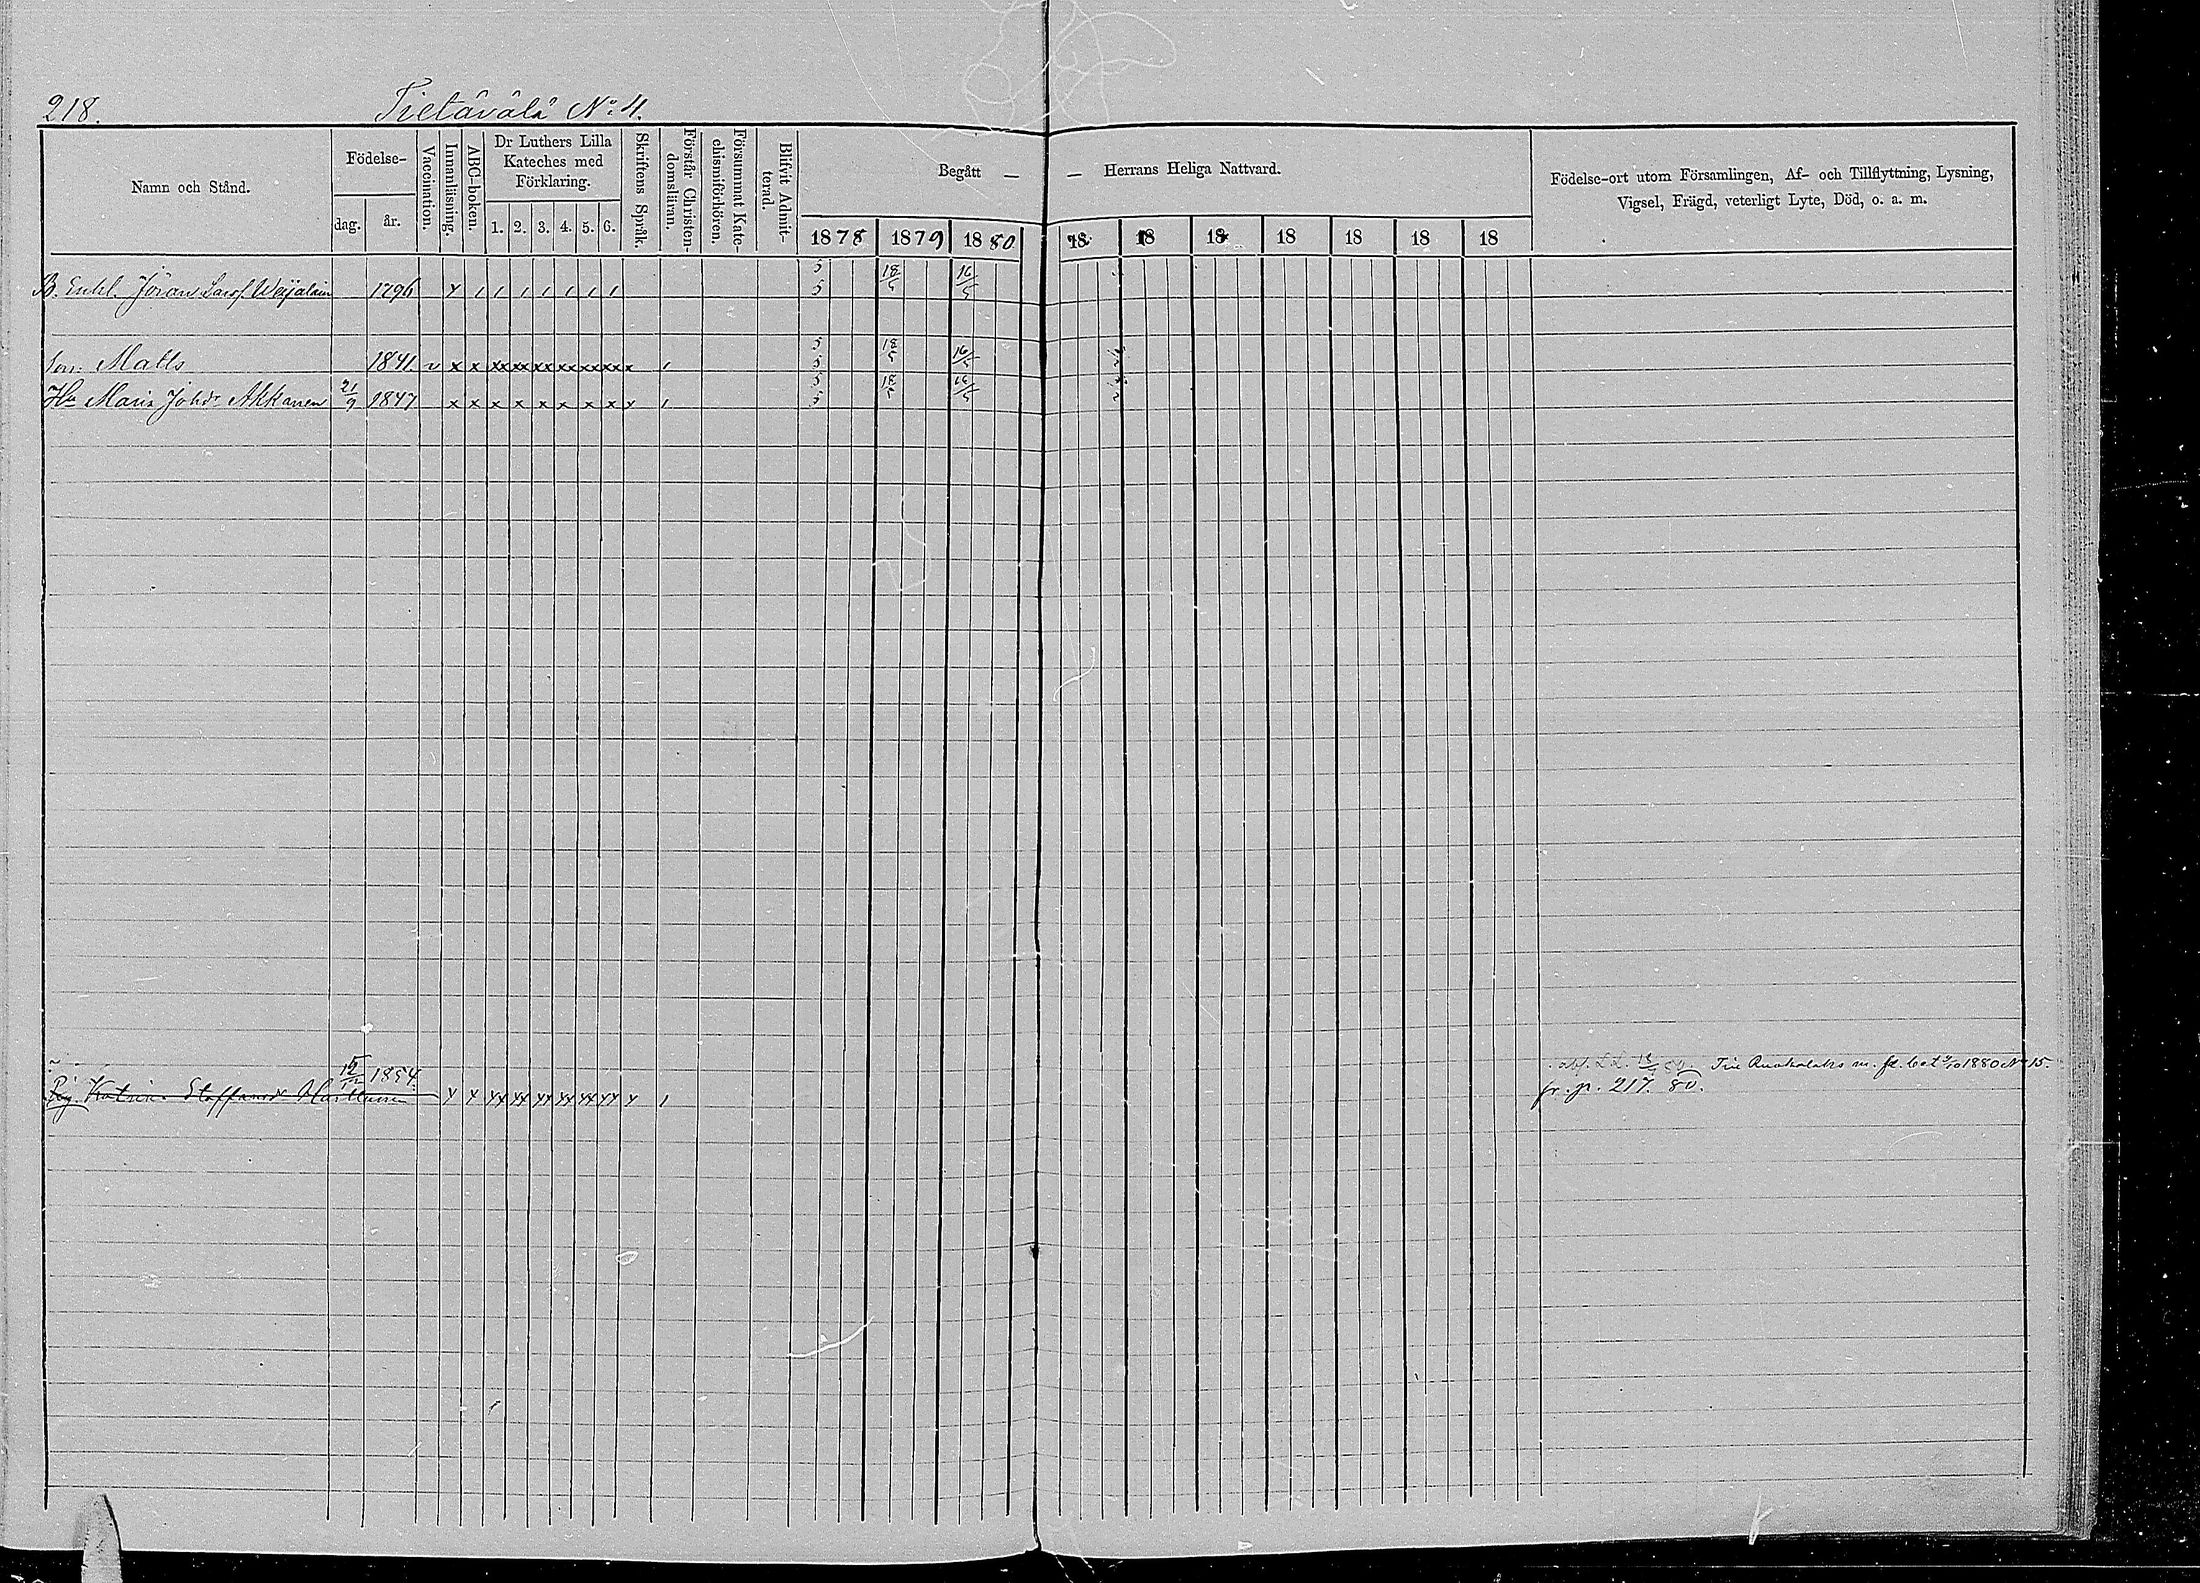 218. Tietävälä No 4.
Namn och Stånd.
Födelse-
dag. år.
Vaccination.
Innanläsning.
ABC-boken.
Dr Luthers Lilla
Kateches med
Förklaring.
1. 2. 3. 4. 5. 6.
Skriftens Språk.
Förstår Christen-
domsläran.
Försummat Kate-
chismiförhören.
Blifvit Admit-
terad.
Begått — — Herrans Heliga Nattvard.
1878 1879 1880 18 18 18 18 18 18 18
Födelse-ort utom Församlingen, Af- och Tillflyttning, Lysning,
Vigsel, Frägd, veterligt Lyte, Död, o. a. m.
B. Enkl. Jöran Larsf. 1796 x 1 1 1 1 1 1 1 5 5 18/5 16/5
son. Matts 1841 v x x xx xx xx xx xx xx x 1 5 5 18/5 16/5
Hu Maria Johdr Akkanen 21/9 1847 x x x x x x x x x 1 5 5 18/5 16/5
Pig. Katrina Staffansdr 1854 x x xx xx xx xx xx xx x 1
1880 No 15.
fr. p. 217. 80.